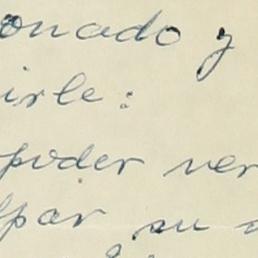 onado y
irle:
poder ver
par su